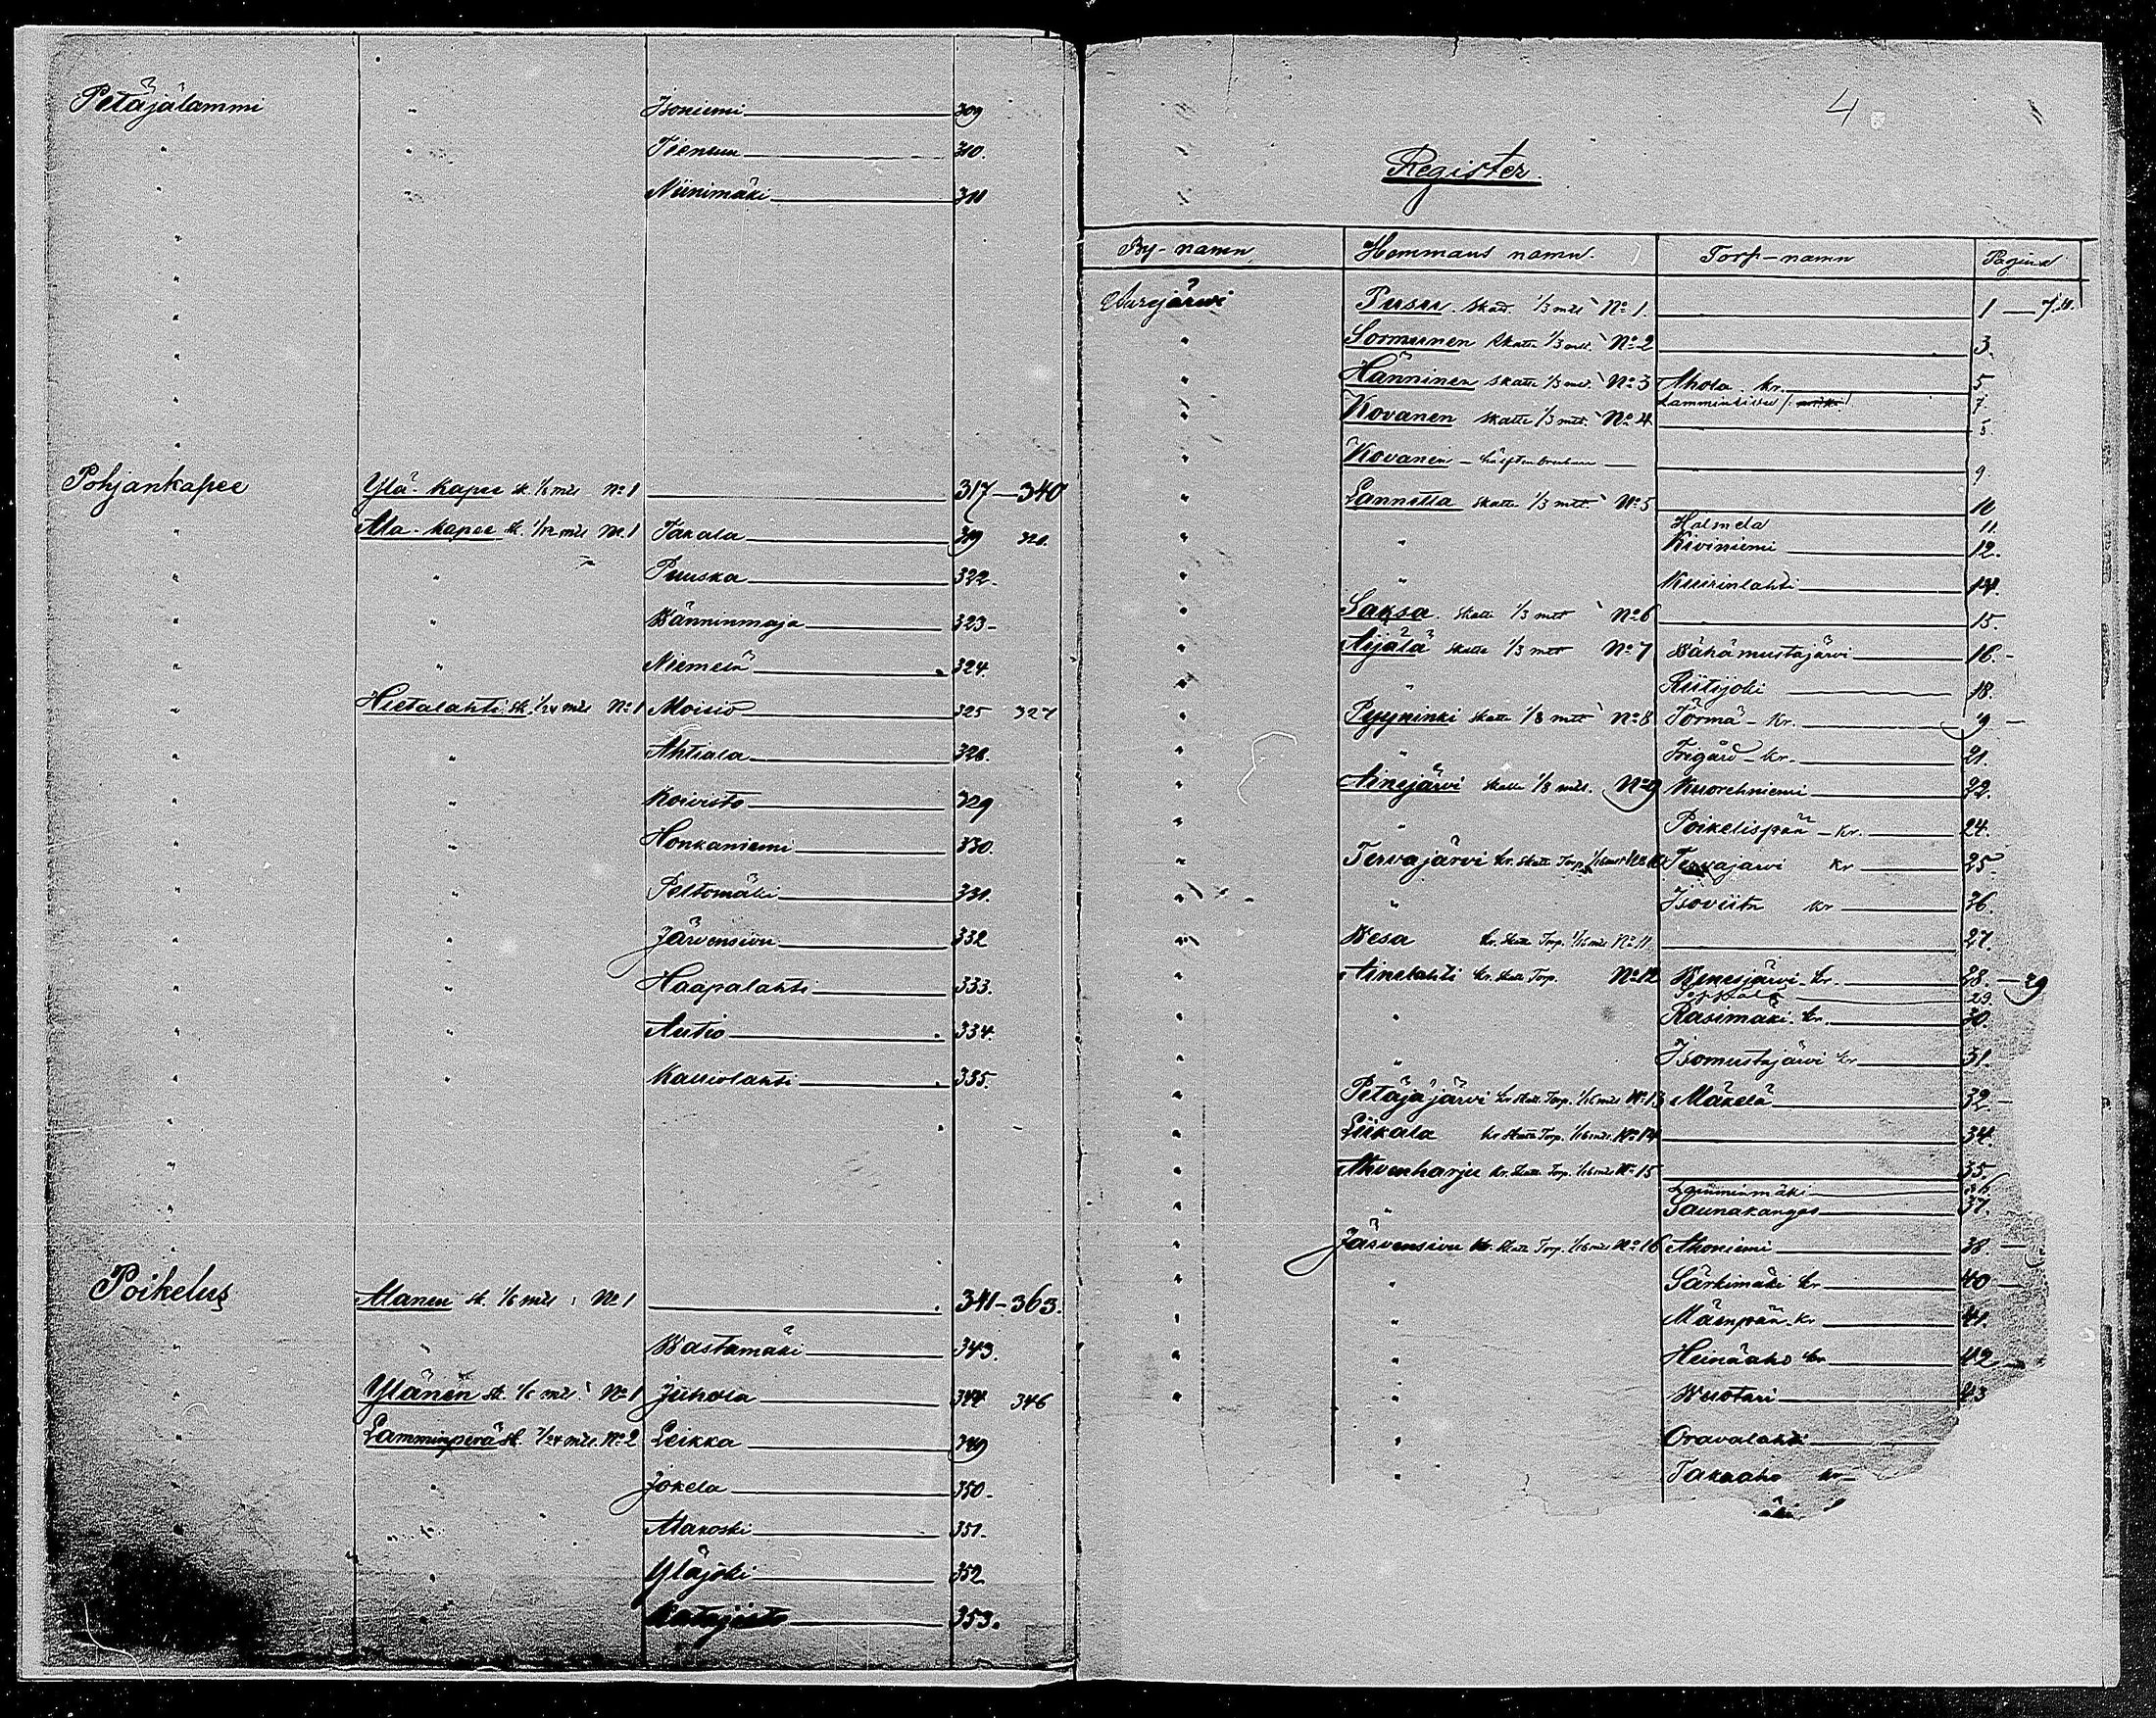 Petäjälammi " Isoniemi 309
" " Tiensuu 310.
" " Niinimäki 311
Pohjankapee Ylä-kapee sk. 1/6 mtl No 1 317—340
" Ala-kapee sk. 1/12 mtl No. 1 Takala 319 321.
" " Puuska 322.
" " Wänninmaja 323-
" " Niemelä 324.
" Hietalahti sk. 1/24 mtl No 1 Moisio 325 327
" " Ahtiala 328.
" " Koivisto 329
" " Honkaniemi 330.
" Peltomäki 331.
" " Järvensivu 332
" " Haapalahti 333.
" " Autio 334.
" " Kalliolahti 335.
Poikelus Alanen sk. 1/6 mtl No 1 341-363.
" " Wastamäki 343.
" Ylänen sk. 1/6 mtl No 1 Juhola 344 346
Lamminperä sk. 1/24 mtl. No 2 Leikka 349
" Jokela 350-
" Alakoski 351-
" " Yläjoki 352
" " Katajisto 353.
4
Register
By-namn Hemmans namn. Torp-namn Pagina
Aurejärwi Pusu. skatt. 1/3 mtl No 1. 1
" Sormunen skatte 1/3 mtl. No 2 3.
" Hänninen skatte 1/3 mtl. No 3 Ahola. kr. 5
7.
" Kovanen skatte 1/3 mtl. No 4
" Kovanen 9
" Lannetta skatte 1/3 mtl. No 5 10
Halmela 11.
" " Kiviniemi 12.
" " Kuirinlahti 14.
" Saksa. skatte 1/3 mtl No 6 15.
" Äijälä skatte 1/3 mtl No 7 Wähämustajärvi 16.-
" " Riitijoki 18.
" Pyyninki skatte 1/8 mtl No 8 Törmä - kr. 19 —
" " Frigård - kr. 21.
" Ainejärvi skatte 1/8 mtl. No 9 Kuorehniemi 22.
" " Poikelispää - kr. 24.
" Tervajärvi kr. skatte Torp. 1/16 mtl No 10 Tervajärvi kr 25
" " Isoviita kr 36.
" Kesä kr. skatte Torp. 1/16 mtl No 11 27.
" Ainelahti kr. skatte Torp. No 12 Kenesjärvi. kr. 28. — 29
29.
" " Rasimäki. kr. 30.
" " Isomustajärvi kr 31.
" Petäjäjärvi kr skatt. Torp. 1/16 mtl No 13 Mäkelä 32
" Liikala kr skatte Torp. 1/16 mtl. No 14 34.
" Ahvenharju kr. skatte Torp. 1/16 mtl No 15 35.
Lamminmäki 36
" " Saunakangas 37.
" Järvensivu kr. skatte Torp. 1/16 mtl No 16 Ahoniemi 38 —
" " Särkimäki kr 40 —
" " Mäenpää. kr 41.
" " Heinäaho kr 42
" " Wuotari 43
" Oravalahti
" Takaaho kr
äki